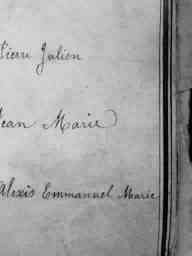 Pierre Julien
Jean Marie
Alexis Emmanuel Marie